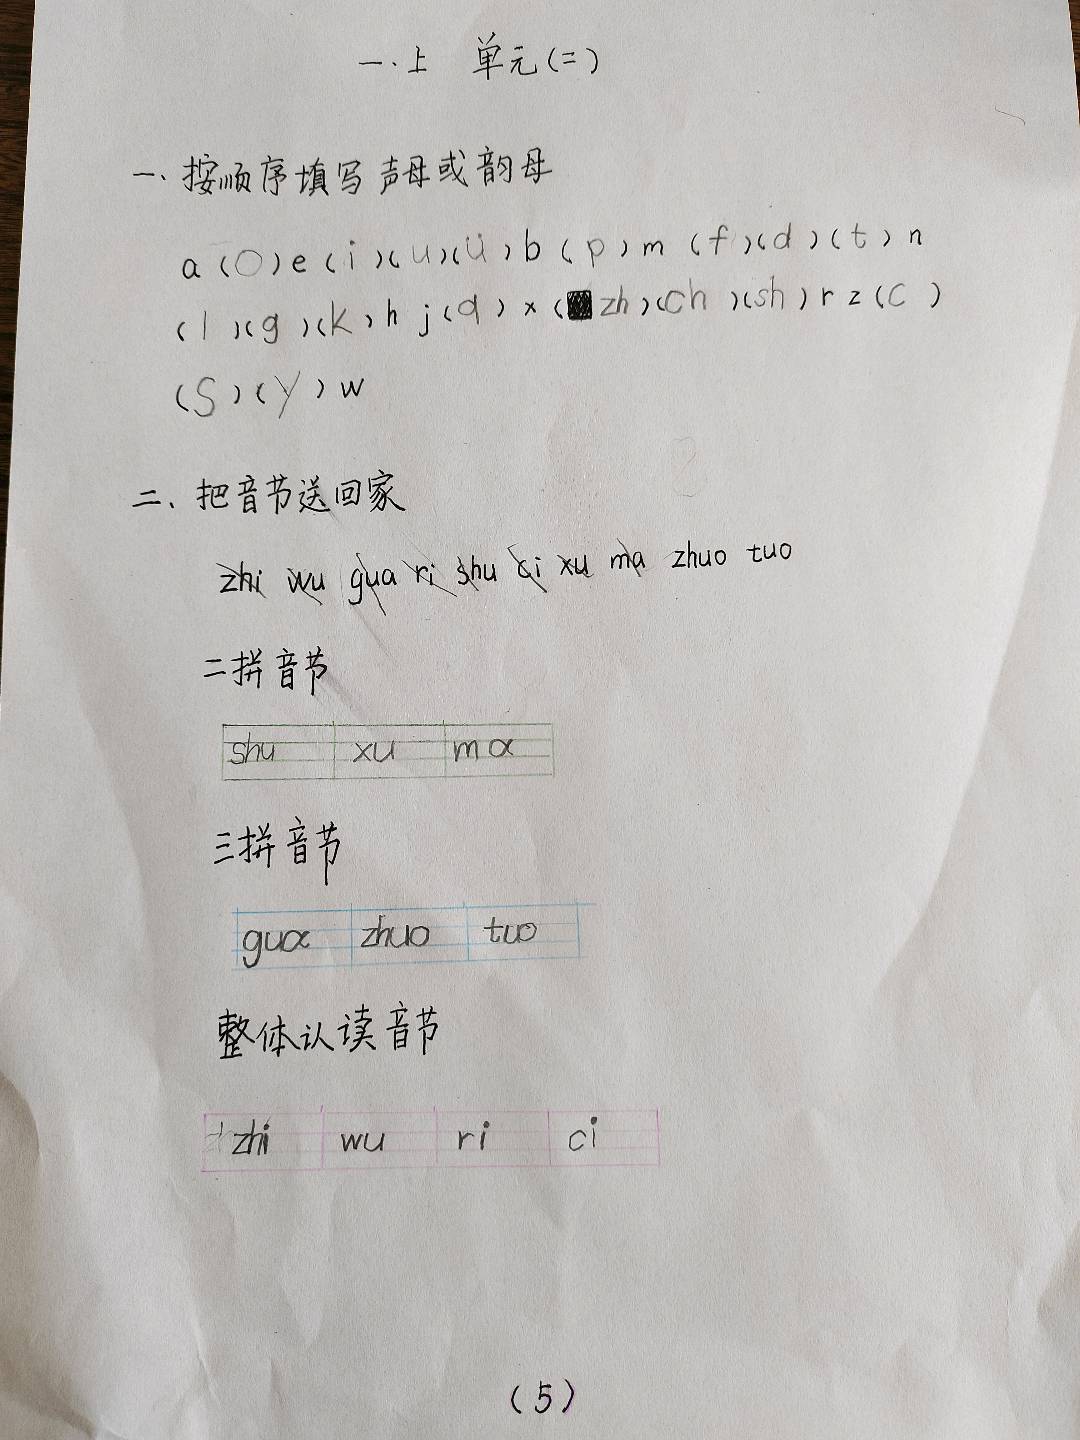 一.上 单元(二)
一、按顺序填写声母或韵母
a (O) e (i)(u)(ü) b (p) m (f)(d)(t) n
(l)(g)(k) h j (q) x (zh)(ch)(sh) r z (c)
(S)(Y) w
二、把音节送回家
zhi wu gua ri shu ci xu ma zhuo tuo
二拼音节
shu xu ma
三拼音节
gua zhuo tuo
整体认读音节
zhi wu ri ci
(5)